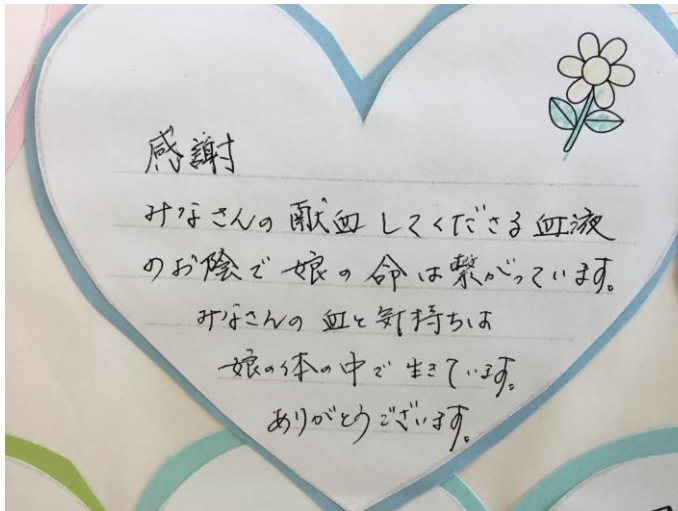 感謝
みなさんの献血してくださる血液
のお陰で娘の命は繋がっています。
みなさんの血と気持ちは
娘の体の中で生きています。
ありがとうございます。